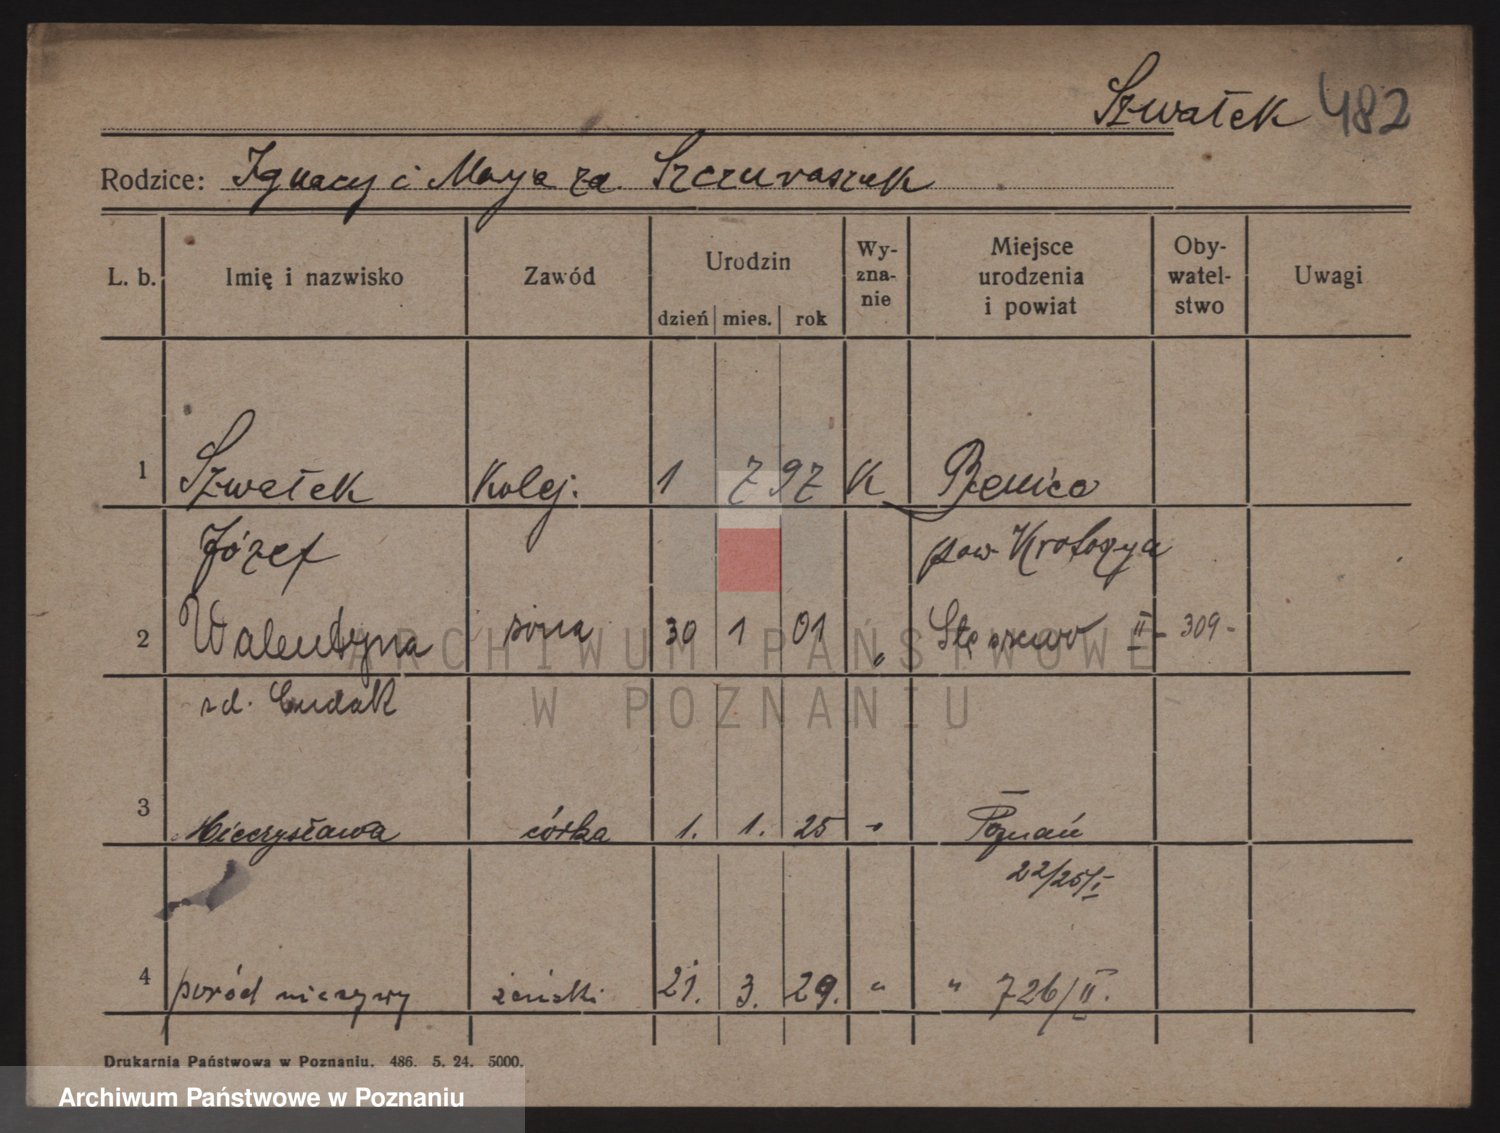 Szwałek 482
Rodzice: Ignacy i Marja za. Szczuraszek
L. b. Imię i nazwisko Zawód Urodzin dzień mies. rok Wy-zna-nie Miejsce urodzenia i powiat Oby-watel-stwo Uwagi
1 Szwałek Kolej. 1 7 97 K
Józef pow
2 Walentyna żona 30 1 01 „ II - 309 -
zd.
3 Mieczysława córka 1. 1. 25 „ Poznań
22/25/I
4 poród nieżywy żeński 21. 3. 29. „ „ 726/II.
Drukarnia Państwowa w Poznaniu. 486. 5. 24. 5000.
ARCHIWUM PAŃSTWOWE
W POZNANIU
Archiwum Państwowe w Poznaniu